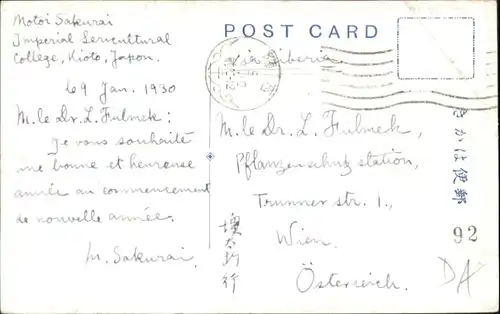 Motoi Sakurai
Imperial Sericultural
College, Kioto, Japon.
le 9 Jan. 1930
M. le Dr. L. Fulmek:
Je vous souhaite
une bonne et heureuse
année au commencement
de nouvelle année.
M. Sakurai.
POST CARD
via Siberia
M. le Dr. L. Fulmek,
Pflanzenschutzstation,
Trunnerstr. 1.,
Wien.
Österreich.
墺太利行
きかは便郵
92
DA